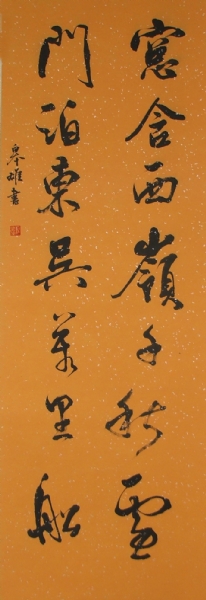 窓含西嶺千秋雪
門泊東吳萬里船
雄書